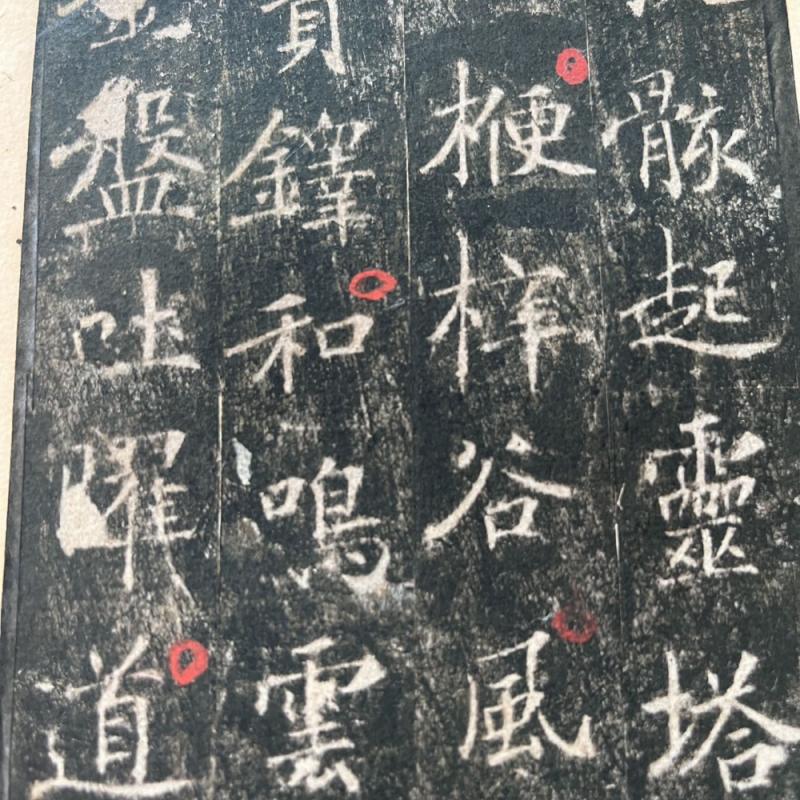 骸起靈塔
楩梓谷風
鐸和鳴雲
盤吐曜道